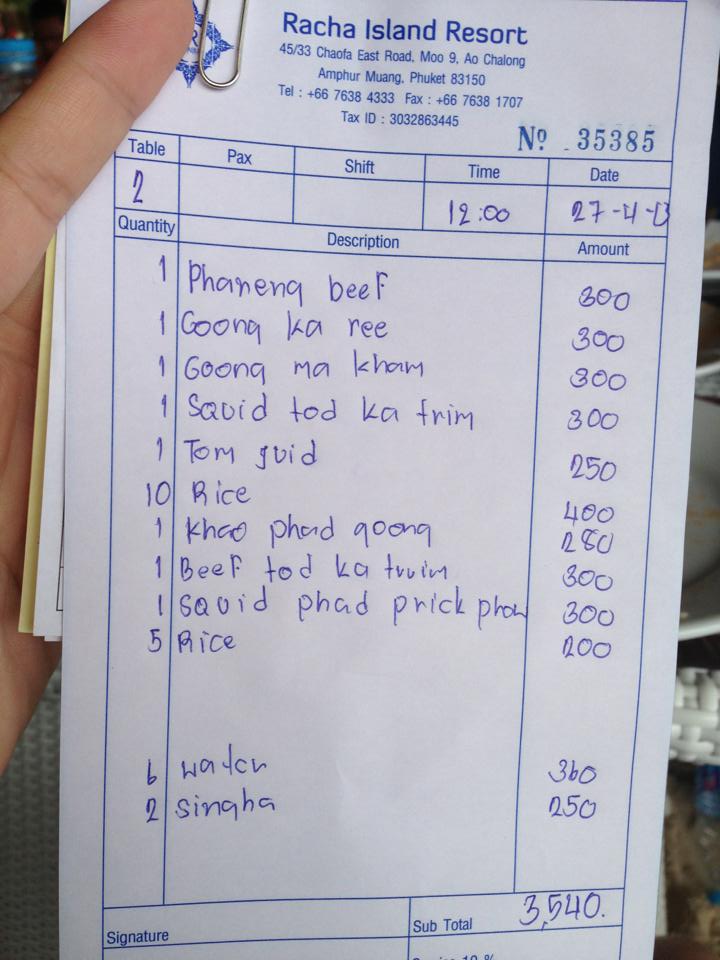 Racha Island Resort
45/33 Chaofa East Road, Moo 9, Ao Chalong
Amphur Muang, Phuket 83150
Tel : +66 7638 4333 Fax : +66 7638 1707
Tax ID : 3032863445
Nº 35385
Table Pax Shift Time Date
2 12:00 27-4-13
Quantity Description Amount
1 Phaneng beef 300
1 Goong ka ree 300
1 Goong ma kham 300
1 Squid tod ka trim 300
1 Tom 250
10 Rice 400
1 khao phad goong 280
1 Beef tod ka 300
1 squid phad prick 300
5 Rice 200
6 water 360
2 singha 250
Signature Sub Total 3,540.
10 %